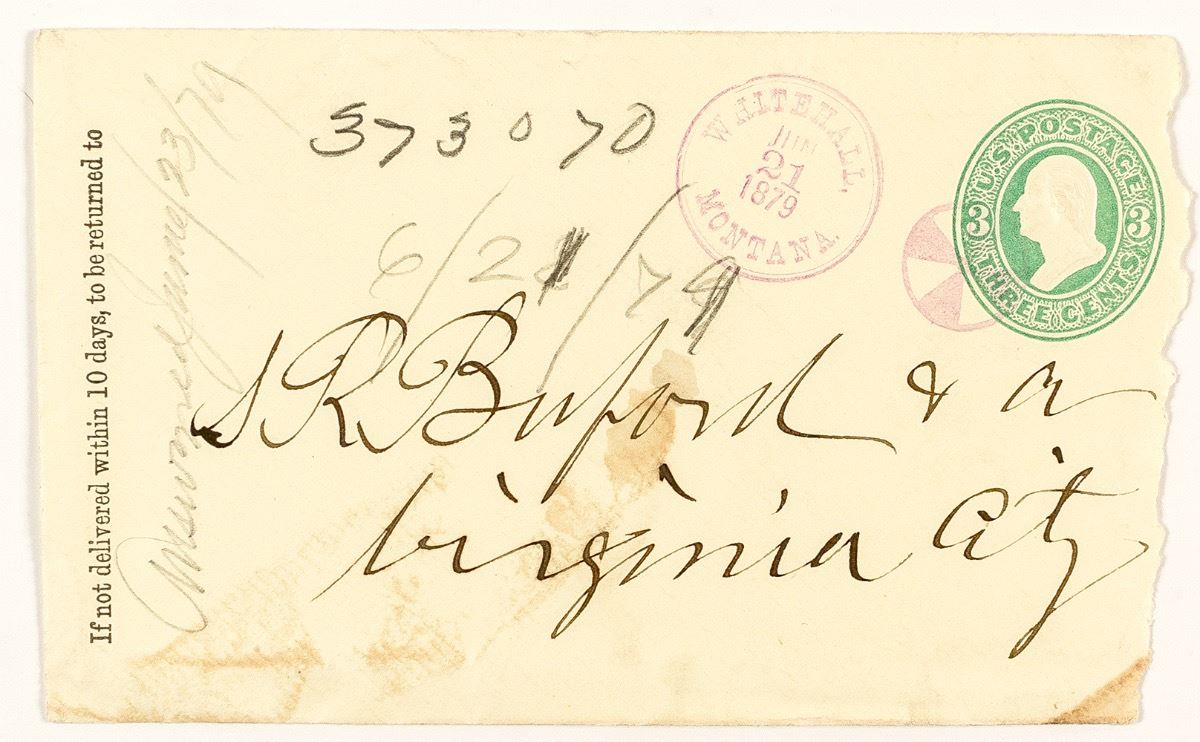 If not delivered within 10 days, to be returned to
Answered June/23/79
373070
WHITEHALL,
JUN
21
1879
MONTANA.
U.S. POSTAGE
3 3
THREE CENTS
6/21/79
S R Buford & Co
Virginia City